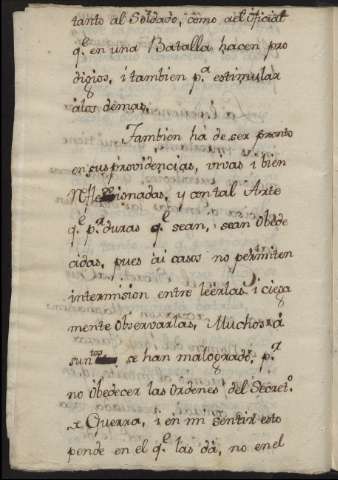 tanto al Soldado, como del oficial
q.e en una Batalla hacen pro
digios, i tambien p.a estimular
álos demas.
Tambien há de ser pronto
en sus providencias, vivas i bien
Reflexionadas, y con tal Arte
q.e p.r duras q.e sean, sean obede
cidas, pues ai casos no permiten
intermision entre leérlas, i ciega
mente observarlas, Muchos á
suntos se han malogrado, p.r
no obedecer las Ordenes del Secret.o
Guerra, i en mi sentir esto
pende en el q.e las dá, no en el